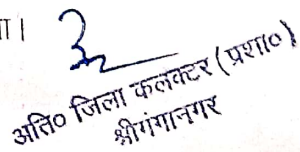 ा।
अति० जिला कलक्टर (प्रशा०)
श्रीगंगानगर